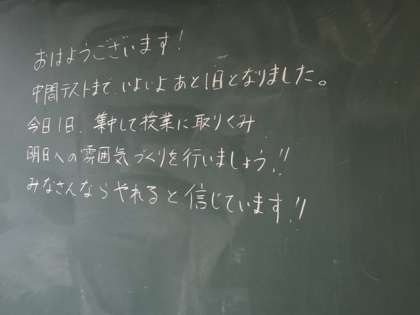 おはようございます!
中間テストまで、いよいよあと1日となりました。
今日1日、集中して授業に取りくみ
明日への雰囲気づくりを行いましょう!!
みなさんならやれると信じています!!